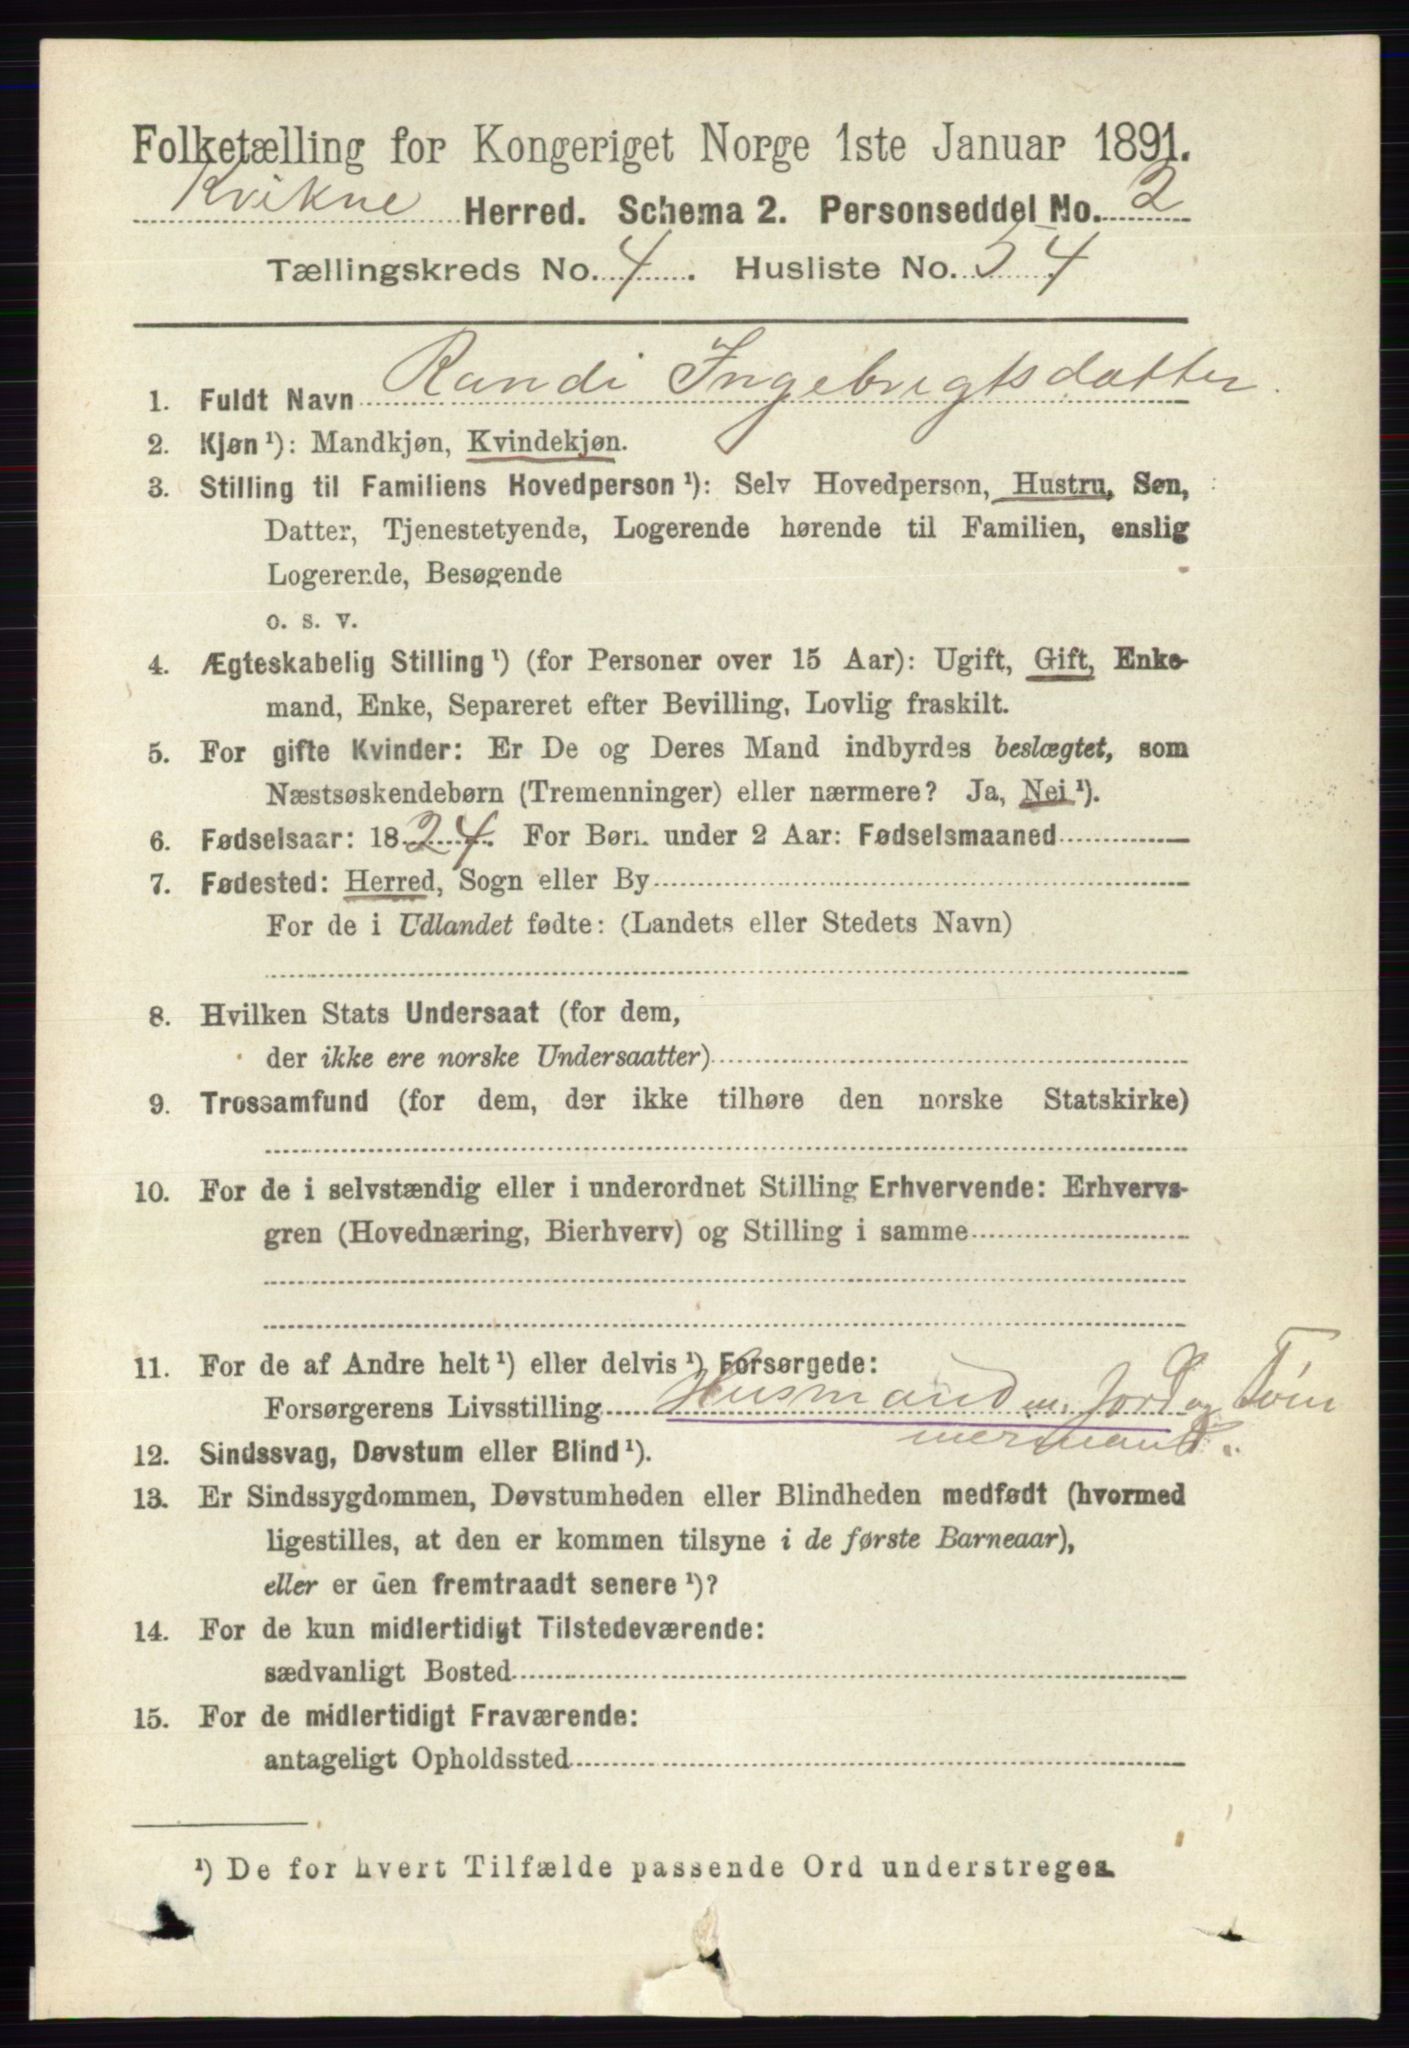 Folketælling for Kongeriget Norge 1ste Januar 1891.
Kvikne Herred. Schema 2. Personseddel No. 2
Tællingskreds No. 4. Husliste No. 54
1. Fuldt Navn Randi Ingebrigtsdatter.
2. Kjøn¹): Mandkjøn, Kvindekjøn.
3. Stilling til Familiens Hovedperson¹): Selv Hovedperson, Hustru, Søn,
Datter, Tjenestetyende, Logerende hørende til Familien, enslig
Logerende, Besøgende
o. s. v.
4. Ægteskabelig Stilling¹) (for Personer over 15 Aar): Ugift, Gift, Enke-
mand, Enke, Separeret efter Bevilling, Lovlig fraskilt.
5. For gifte Kvinder: Er De og Deres Mand indbyrdes beslægtet, som
Næstsøskendebørn (Tremenninger) eller nærmere? Ja, Nei¹).
6. Fødselsaar: 1824. For Børn under 2 Aar: Fødselsmaaned
7. Fødested: Herred, Sogn eller By
For de i Udlandet fødte: (Landets eller Stedets Navn)
8. Hvilken Stats Undersaat (for dem,
der ikke ere norske Undersaatter)
9. Trossamfund (for dem, der ikke tilhøre den norske Statskirke)
10. For de i selvstændig eller i underordnet Stilling Erhvervende: Erhvervs-
gren (Hovednæring, Bierhverv) og Stilling i samme
11. For de af Andre helt¹) eller delvis¹) Forsørgede:
Forsørgerens Livsstilling Husmand m. Jord og Töm
mermand.
12. Sindssvag, Døvstum eller Blind¹).
13. Er Sindssygdommen, Døvstumheden eller Blindheden medfødt (hvormed
ligestilles, at den er kommen tilsyne i de første Barneaar),
eller er den fremtraadt senere¹)?
14. For de kun midlertidigt Tilstedeværende:
sædvanligt Bosted
15. For de midlertidigt Fraværende:
antageligt Opholdssted
¹) De for hvert Tilfælde passende Ord understreges.